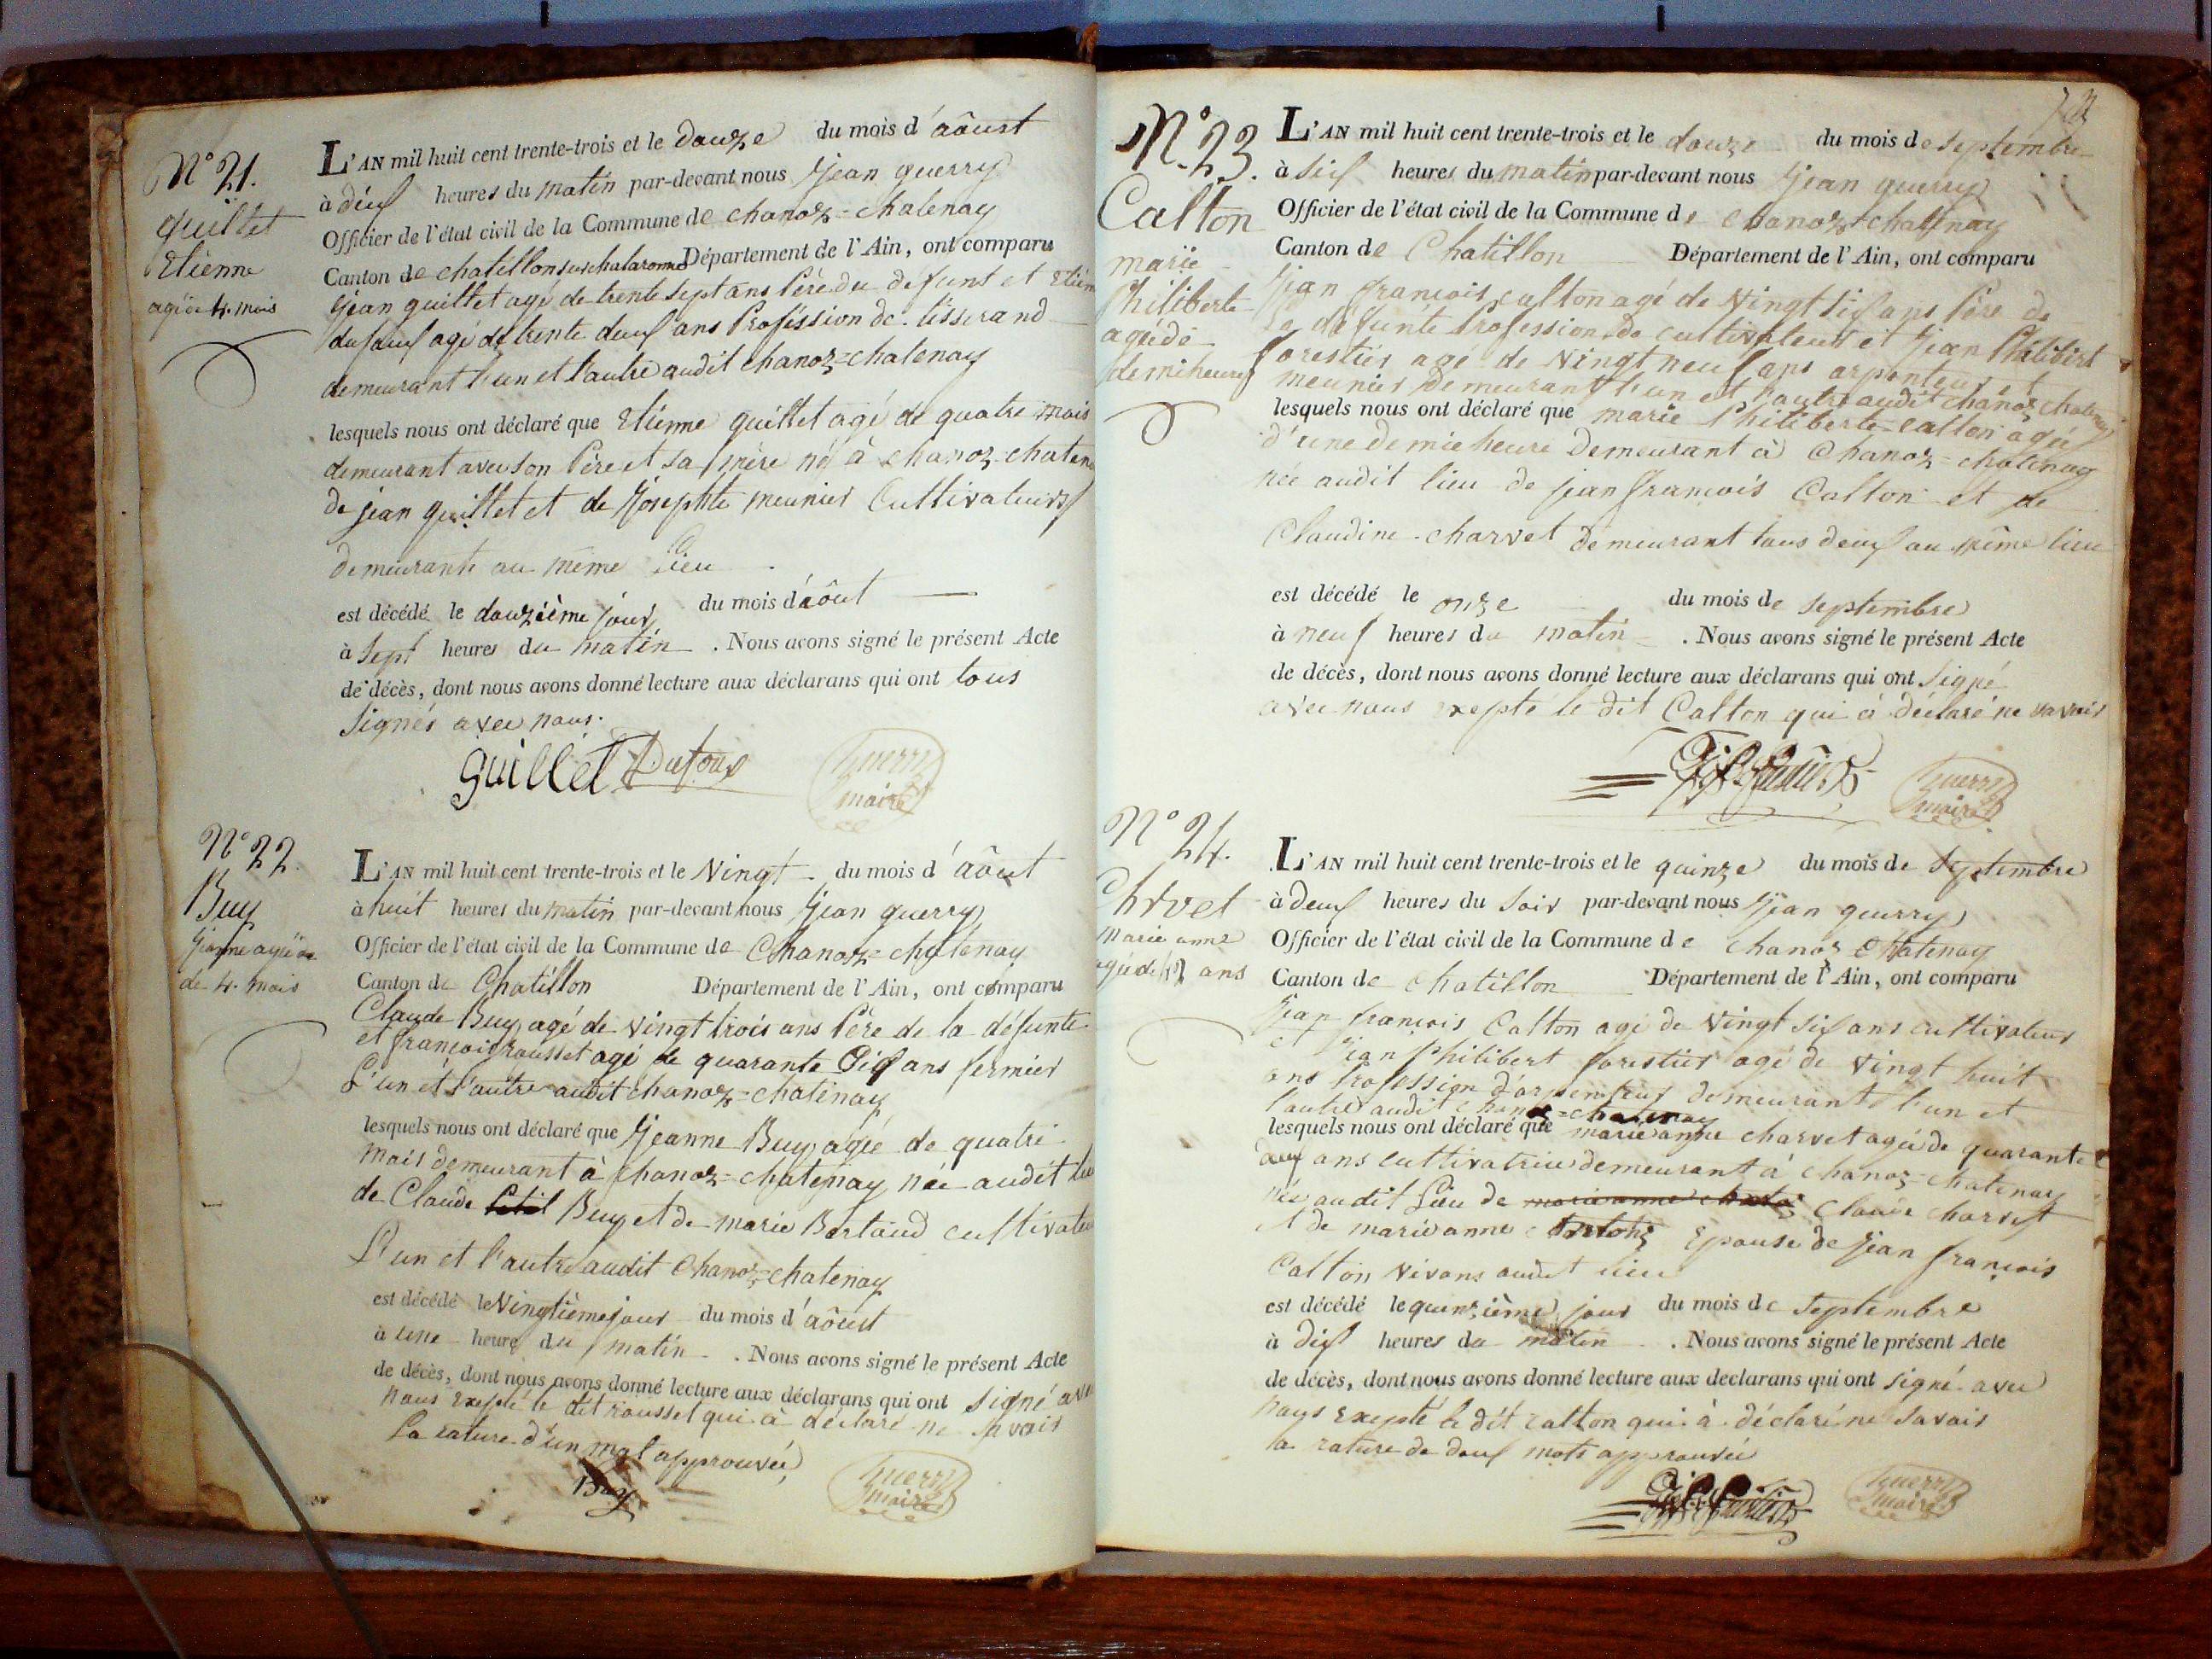 N° 21.
guillet
Etienne
agé de 4. mois
L'AN mil huit cent trente-trois et le douze du mois d'aôust
à deux heures du matin par-devant nous Jean guerry
Officier de l'état civil de la Commune de chanoz=chatenay
Canton de chatillon sur chalaronne Département de l'Ain, ont comparu
Jean guillet agé de trente sept ans Père du defunt et Etien
dufour agé de trente deux ans Profession de tisserand
demeurant l'un et l'autre audit chanoz=chatenay
lesquels nous ont déclaré que Etienne guillet agé de quatre mois
demeurant avec son Père et sa mère né à chanoz-chaten
de jean guillet et de Josephte meunier Cultivateurs
demeurants au même Lieu
est décédé le douzième jour du mois d'août
à sept heures du matin . Nous avons signé le présent Acte
de décès, dont nous avons donné lecture aux déclarans qui ont tous
signés avec nous.
guillet Dufour
Guerry
maire
N° 22.
Buy
Jeanne agée
de 4. mois
L'AN mil huit cent trente-trois et le Vingt du mois d'aôut
à huit heures du matin par-devant nous Jean guerry
Officier de l'état civil de la Commune de Chanoz=chatenay
Canton de Chatillon Département de l'Ain, ont comparu
Claude Buy agé de vingt trois ans Père de la défunte
et françois rousset agé de quarante Six ans fermier
L'un et l'autre audit chanoz=chatenay
lesquels nous ont déclaré que Jeanne Buy agée de quatre
mois demeurant à chanoz=chatenay née audit lieu
de Claude Buy et de marie Bertaud cultivate
L'un et l'autre audit Chanoz=chatenay
est décédé le Vingtième jour du mois d'aôust
à une heure du matin . Nous avons signé le présent Acte
de décès, dont nous avons donné lecture aux déclarans qui ont signé avec
nous Exepté le dit rousset qui à déclaré ne savoir
La rature d'un mot approuvée
Buy
Guerry
maire
N° 23.
Calton
marie
Philiberte
agée de
demi heure
L'AN mil huit cent trente-trois et le douze du mois de septembre
à six heures du matin par-devant nous Jean guerry
Officier de l'état civil de la Commune de chanoz=chatenay
Canton de Chatillon Département de l'Ain, ont comparu
Jean françois calton agé de Vingt six ans Père de
la défunte Profession de cultivateur et Jean Philibert
forestier agé de Vingt neuf ans arpenteur et
meunier demeurant l'un et l'autre audit chanoz chatenay
lesquels nous ont déclaré que marie Philiberte calton agée
d'une demie heure demeurant à Chanoz=chatenay
née audit lieu de jean françois Calton et de
Claudine charvet demeurant tous deux au même lieu
est décédé le onze du mois de septembre
à neuf heures du matin . Nous avons signé le présent Acte
de décès, dont nous avons donné lecture aux déclarans qui ont signé
avec nous exepté le dit Calton qui à déclaré ne savoir
Guerry
maire
N° 24.
Chrvet
marie anne
agée de 42 ans
L'AN mil huit cent trente-trois et le quinze du mois de septembre
à deux heures du soir par-devant nous Jean guerry
Officier de l'état civil de la Commune de chanoz Chatenay
Canton de Chatillon Département de l'Ain, ont comparu
Jean françois Calton agé de Vingt six ans cultivateur
et Jean Philibert forestier agé de vingt huit
ans Profession d'arpenteur demeurants l'un et
l'autre audit chanoz=chatenay
lesquels nous ont déclaré que marie anne charvet agée de quarante
deux ans cultivatrice demeurant à chanoz=chatenay
née audit Lieu de marie anne Claude charvet
et de marie anne Epouse de Jean françois
Calton vivans audit lieu
est décédé le quinzième jour du mois de septembre
à dix heures du matin . Nous avons signé le présent Acte
de décès, dont nous avons donné lecture aux declarans qui ont signé avec
nous Exepté le dit calton qui à déclaré ne savoir
la rature de deux mots approuvée
Guerry
maire